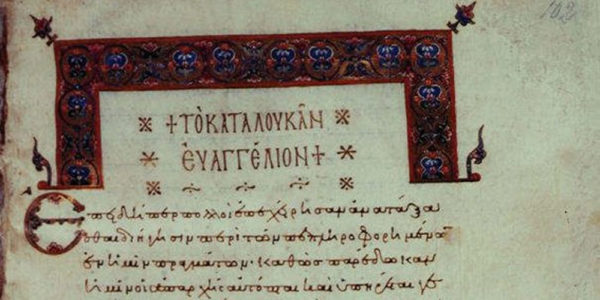 102
+ΤὸΚΑΤΑΛΟΥΚᾶΝ
ἐΥΑΓΓέΛΙΟΝ+
Ἐπειδήπερ πολλοὶ ἐπεχείρησαν ἀνατάξα
σθαι διήγησιν περὶ τῶν πεπληροφορημένω
ἐν ἡμῖν πραγμάτων· καθὼς παρέδοσαν
ἡμῖν οἱ ἀπαρχῆς αὐτόπται καὶ ὑπηρέται γε